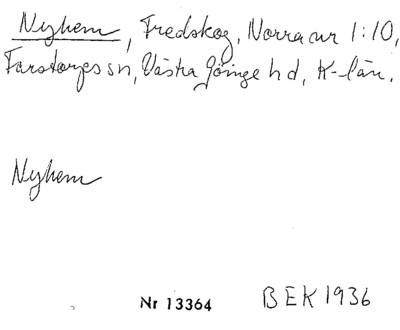 Nyhem, Fredskog, Norra avr 1:10,
Farstorps sn, Västra Göinge hd, K-län.
Nyhem
Nr 13364 BEK 1936